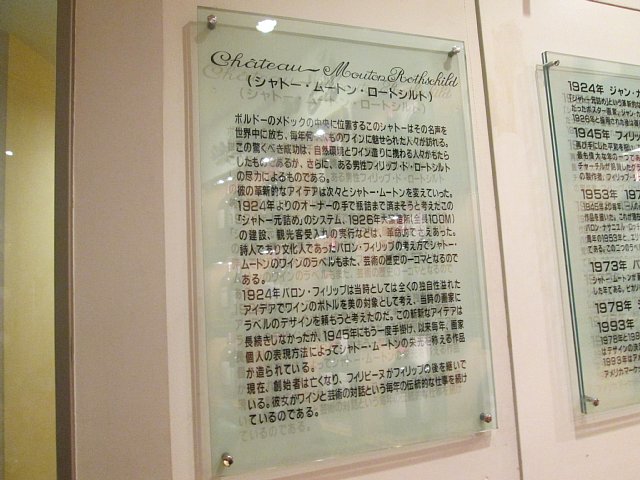 Château Mouton Rothschild
(シャトー・ムートン・ロートシルト)
ボルドーのメドックの中央に位置するこのシャトーはその名声を
世界中に放ち、毎年何 ものワインに魅せられた人々が訪れる。
この驚くべき成功は、自然環境とワイン造りに携わる人々がもたら
したものであるが、さらに、ある男性フィリップ・ド・ロートシルト
の尽力によるものである。
彼の革新的なアイデアは次々とシャトー・ムートンを変えていった。
1924年よりのオーナーの手で瓶詰まで済まそうと考えたこの
「シャトー元詰め」のシステム、1926年大 (全長100M)
の建設、観光客受入れの実行などは、革命的でさえあった。
詩人であり文化人であったバロン・フィリップの考え方でシャトー・
ムートンのワインのラベルもまた、芸術の歴史の一コマとなるので
ある。
1924年バロン・フィリップは当時としては全くの独自性溢れた
アイデアでワインのボトルを美の対象として考え、当時の画家に
ラベルのデザインを頼もうと考えたのだ。この斬新なアイデアは
長続きしなかったが、1945年にもう一度手掛け、以来毎年、画家
個人の表現方法によってシャトー・ムートンの栄光を称える作品
が造られている。
現在、創始者は亡くなり、フィリピーヌがフィリップの後を継いで
いる。彼女がワインと芸術の対話という毎年の伝統的な仕事を続け
ているのである。
1924年 ジャン・カ
1945年 フィリッ
1953年 197
1973年 パ
1978年
1993年
1978年と19
はデザインの決
1993年はアメ
アメリカマーケ